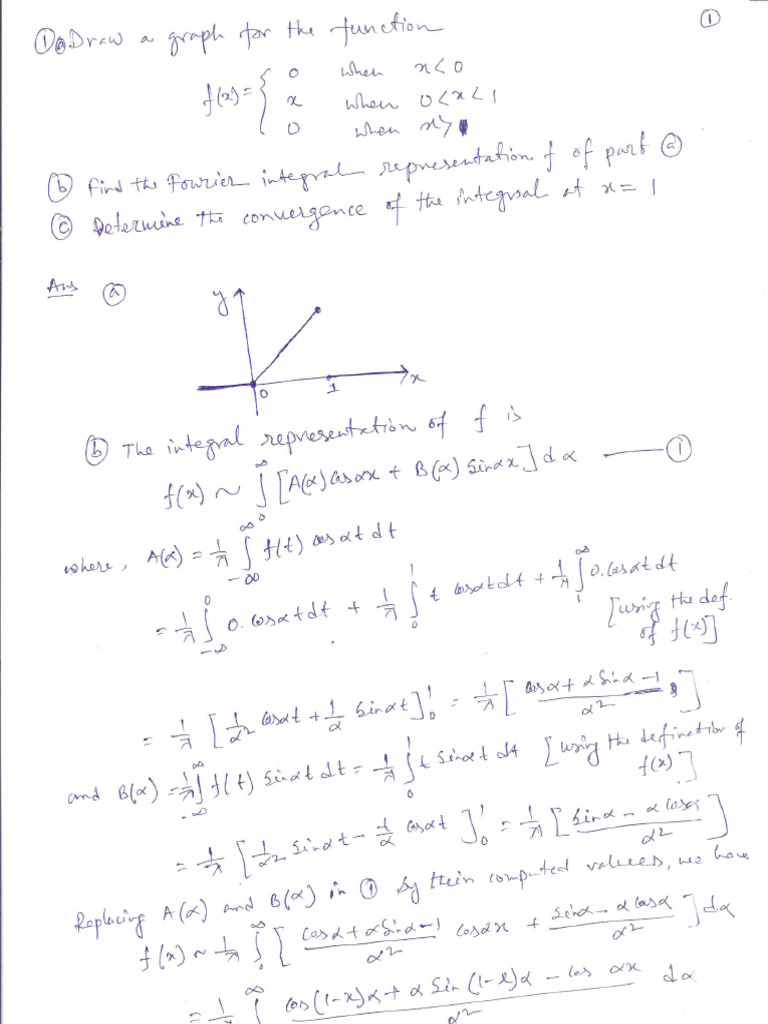 ①
① ⓐ Draw a graph for the function
f(x) = { 0 when x<0
x when 0<x<1
0 when x>1
ⓑ Find the Fourier integral representation f of part ⓐ
ⓒ Determine the convergence of the integral at x = 1
Ans ⓐ
y
x
0 1
ⓑ The integral representation of f is
f(x) ~ ∫₀^∞ [A(α) cos αx + B(α) sin αx] dα —— ①
where, A(α) = 1/π ∫_{-∞}^∞ f(t) cos αt dt
= 1/π ∫_{-∞}^0 0. cos αt dt + 1/π ∫₀^1 t cos αt dt + 1/π ∫₁^∞ 0. cos αt dt
[using the def. of f(x)]
= 1/π [1/α² cos αt + 1/α sin αt]₀^1 = 1/π [(cos α + α sin α − 1)/α²]
and B(α) = 1/π ∫_{-∞}^∞ f(t) sin αt dt = 1/π ∫₀^1 t sin αt dt [using the defination of f(x)]
= 1/π [1/α² sin αt − t/α cos αt]₀^1 = 1/π [(sin α − α cos α)/α²]
Replacing A(α) and B(α) in ① by thein computed values, we have
f(x) ~ 1/π ∫₀^∞ [(cos α + α sin α − 1)/α² cos αx + (sin α − α cos α)/α²] dα
= 1/π ∫^∞ (cos (1−x)α + α sin (1−x)α − cos αx)/α² dα